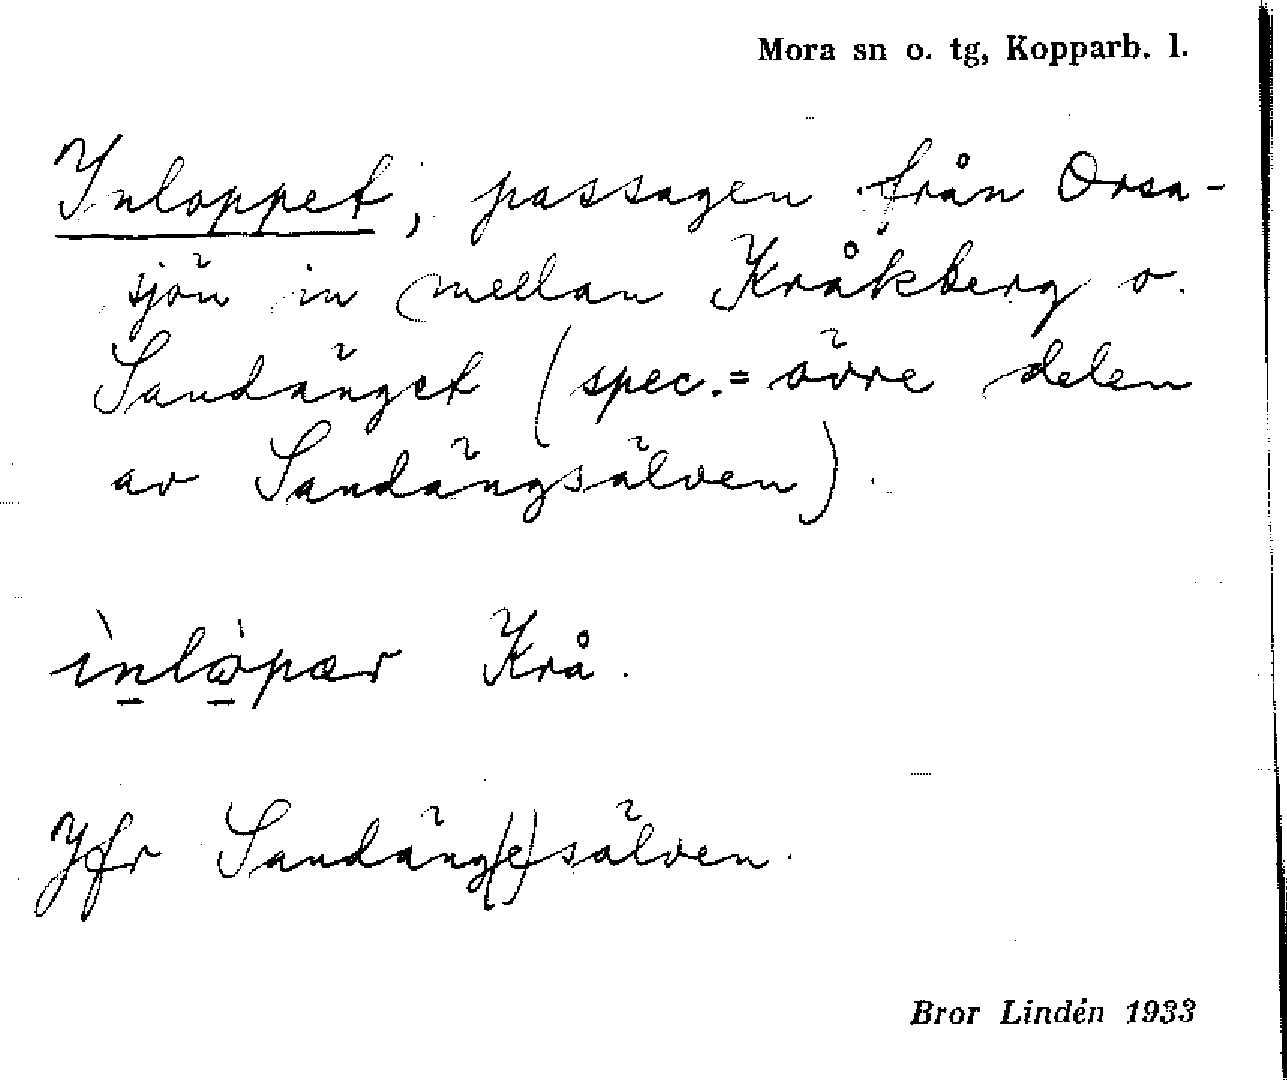 Mora sn o. tg, Kopparb. l.
Inloppet, passagen från Orsa-
sjön in mellan Kråkberg o.
Sandänget (spec. = övre delen
av Sandängsälven).
Krå.
Jfr Sandäng(e)sälven.
Bror Lindén 1933